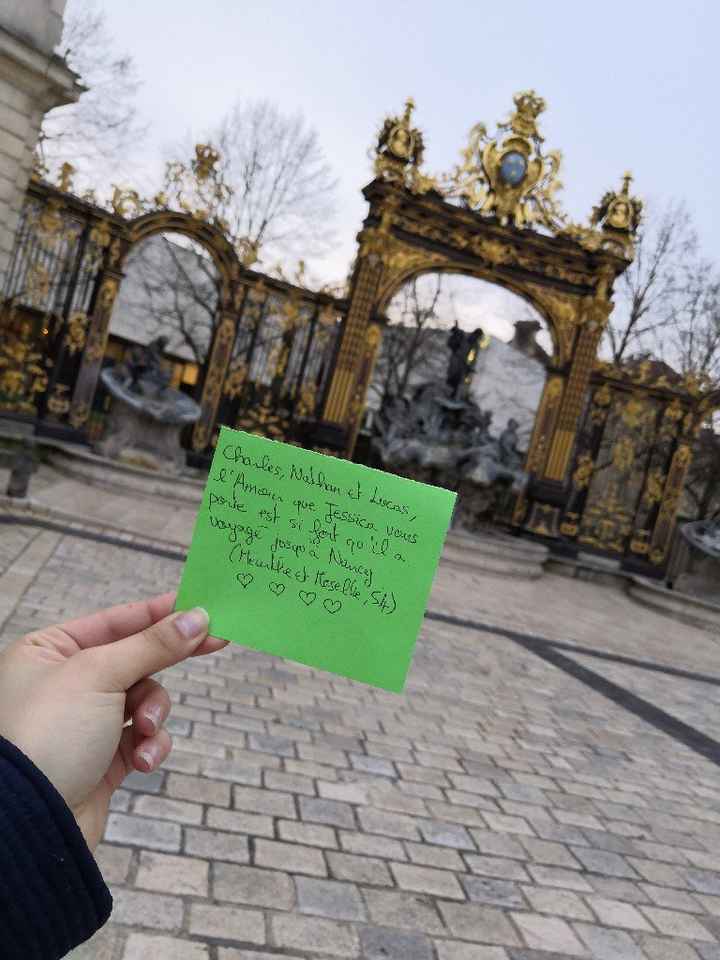 Charles, Nathan et Lucas,
l'Amour que Jessica vous
porte est si fort qu'il a
voyagé jusqu'à Nancy
(Meurthe et Moselle, 54)
♡ ♡ ♡ ♡